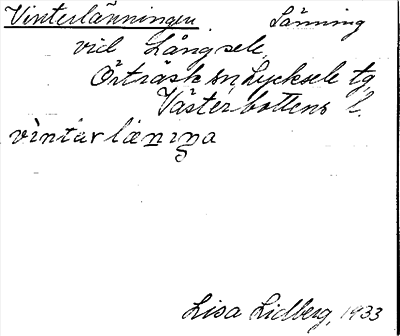 Vinterlänningen. Länning
vid Långsele,
Örträsk sn, Lycksele tg,
Västerbottens l.
vintərlæniŋa
Lisa Lidberg, 1933